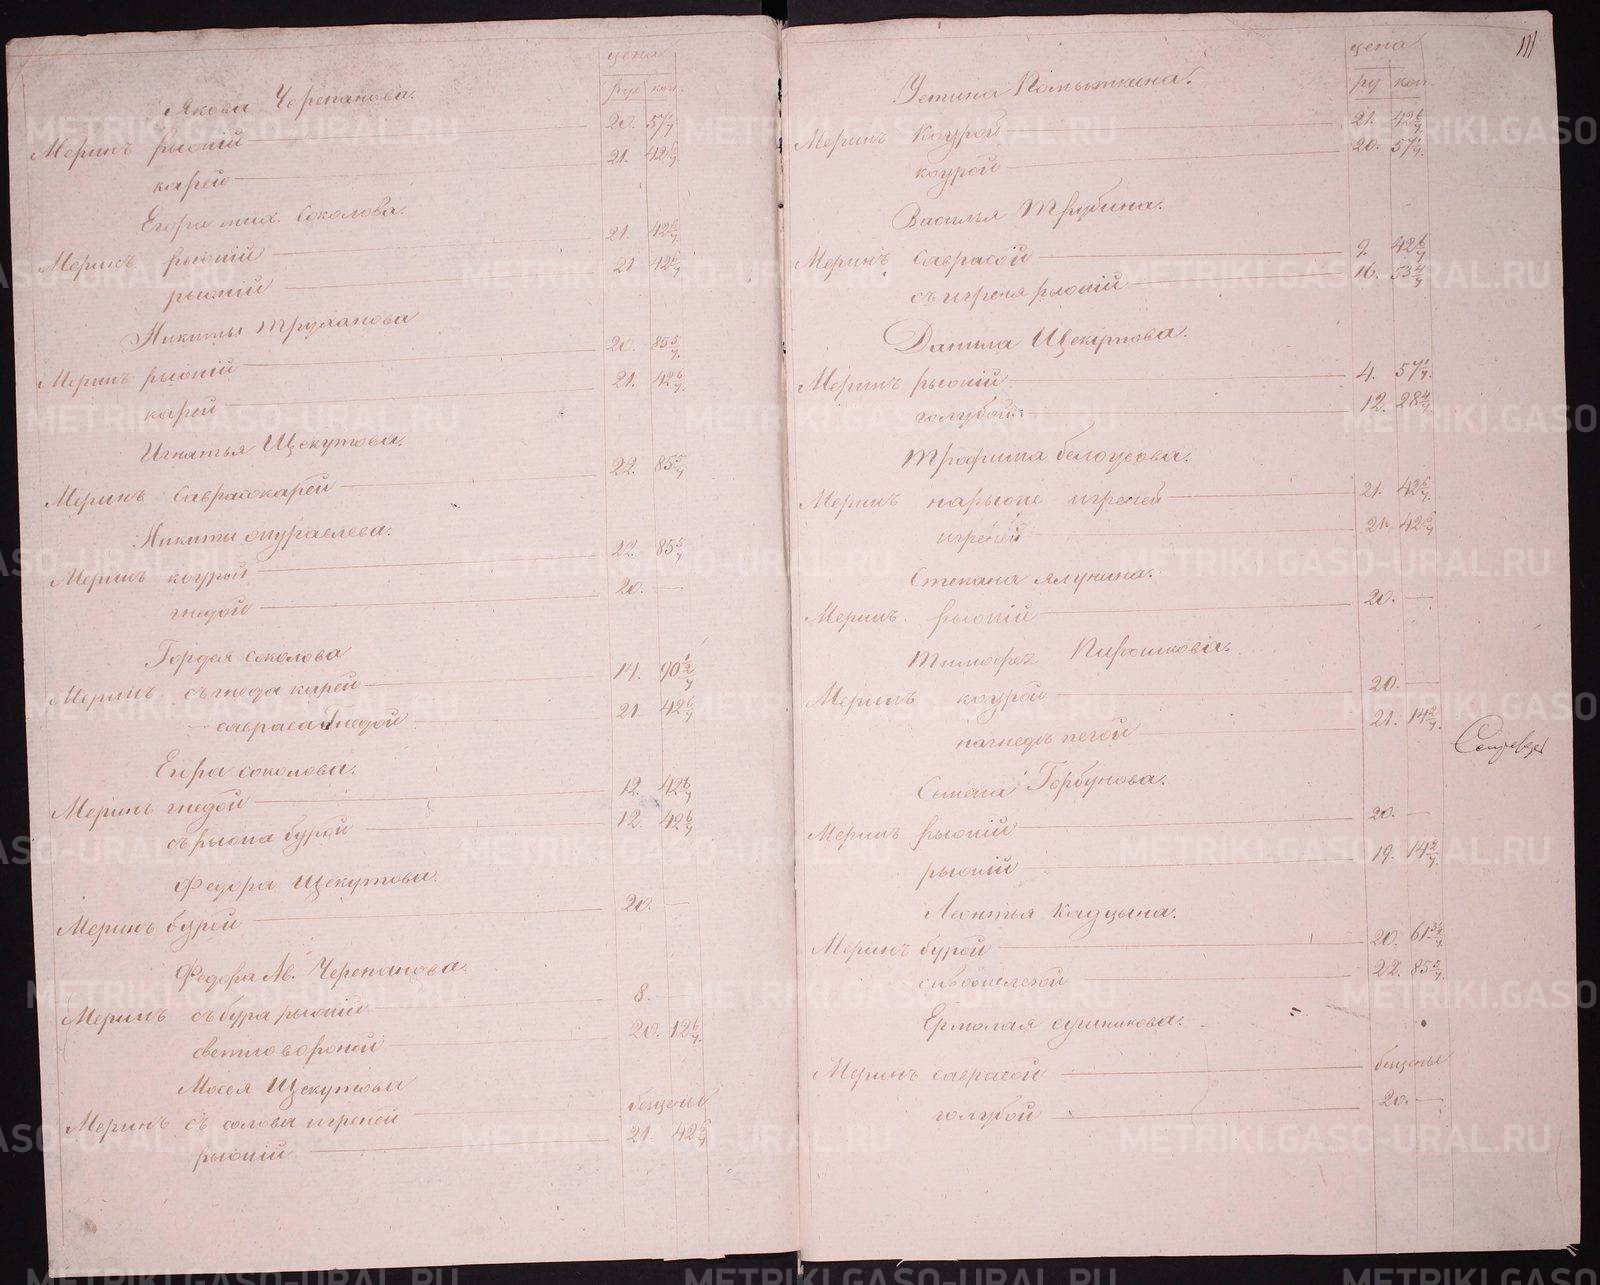 цена
руб коп.
Якова Черепанова.
Меринъ рыжій 20. 57 1/7
карей 21. 42 6/7
Егора мих. Соколова.
Меринъ рыжій 21. 42 6/7
рыжій 21 42 6/7
Никиты Труханова
Меринъ рыжій 20. 85 5/7
карей 21. 42 6/7
Игнатья Щекутова.
Меринъ Саврасокарей 22. 85 5/7
Никиты журавлева.
Меринъ коурой 22. 85 5/7
гнедой 20. —
Гордея соколова
Меринъ съ гнеда карей 14. 90 1/2/7
савраса Гнедой 21 42 6/7
Егора соколова.
Меринъ гнедой 12. 42 6/7
съ рыжа бурой 12. 42 6/7
Федора Щекутова.
Меринъ бурой 20. —
Федора Ав. Черепанова.
Меринъ съ бура рыжій 8. —
светловороной 20. 12 6/7
Мосея Щекутова
Меринъ съ солова игреней безцены
рыжій 21. 42 6/7
111
цена
ру коп.
Устина Помыткина.
Меринъ Коурой 21. 42 6/7
коурой 20. 57 1/7
Василья Трубина.
Меринъ саврасой 2. 42 6/7
съ игреня рыжій 16. 53 4/7
Данила Щекутова.
Меринъ рыжій 4. 57 1/7
голубой 12. 28 4/7
Трофима белоусова.
Меринъ нарыже игреней 21. 42 6/7
игреней 21. 42 6/7
Степана Ялунина.
Меринъ рыжій 20. —
Тимофея Пирожкова.
Меринъ коурой 20. —
нагнеде пегой 21. 14 2/7
Семена Горбунова.
Меринъ рыжій 20. —
рыжій 19. 14 2/7
Леонтья Кадцына.
Меринъ бурой 20. 61
сивожелезой 22. 85 5/7
Ермолая сушникова.
Меринъ саврасой безцены
голубой 20. —
METRIKI.GASO-URAL.RU